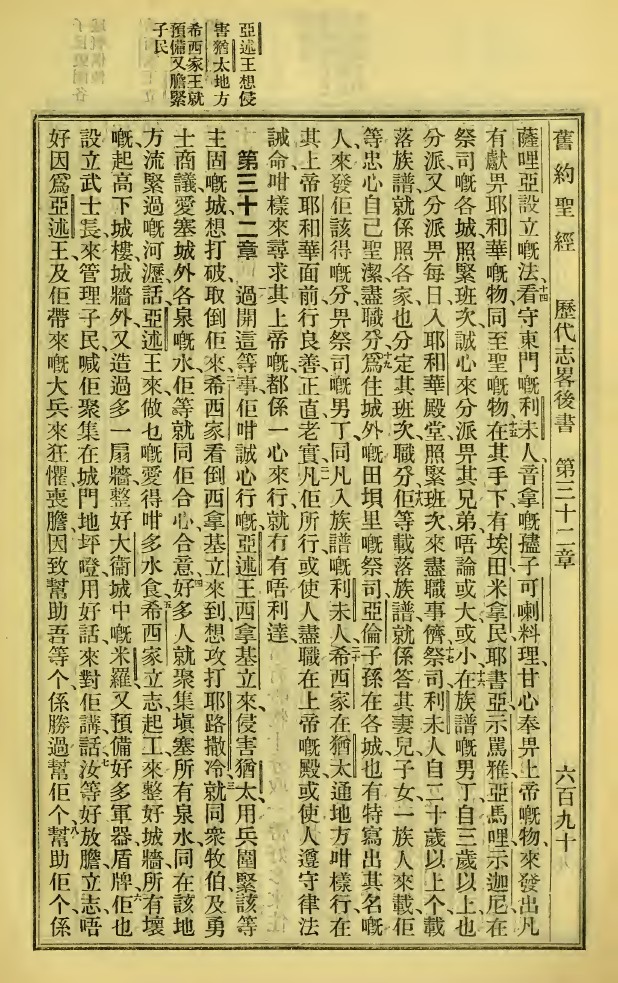 亞述王想侵
害猶太地方
希西家王就
預備又膽緊
子民
舊約聖經 歷代志畧後書 第三十二章 六百九十
薩哩亞設立嘅法、十四看守東門嘅利未人音拿嘅孻子可喇料理甘心奉畀上帝嘅物、來發出凡
有獻畀耶和華嘅物同至聖嘅物、十五在其手下有埃田米拿民耶書亞示罵雅亞馬哩示迦尼在
祭司嘅各城照緊班次誠心來分派畀其兄弟唔論或大或小、十六在族譜嘅男丁自三歲以上也
分派又分派畀每日入耶和華殿堂照緊班次來盡職事儕、十七祭司利未人自二十歲以上个載
落族譜就係照各家也分定其班次職分、十八佢等載落族譜就係答其妻兒子女一族人來載佢
等忠心自己聖潔盡職分、十九爲住城外嘅田垻里嘅祭司亞倫子孫在各城也有特寫出其名嘅
人來發佢該得嘅分畀祭司嘅男丁同凡入族譜嘅利未人、二十希西家在猶太通地方咁樣行在
其上帝耶和華面前行良善正直老實、二一凡佢所行或使人盡職在上帝嘅殿或使人遵守律法
誡命咁樣來尋求其上帝嘅都係一心來行就冇有唔利達、
第三十二章 一過開這等事佢咁誠心行嘅亞述王西拿基立來侵害猶太用兵圍緊該等
主固嘅城想打破取倒佢來、二希西家看倒西拿基立來到想攻打耶路撒冷、三就同衆牧伯及勇
士商議愛塞城外各泉嘅水佢等就同佢合心合意、四好多人就聚集塡塞所有泉水同在該地
方流緊過嘅河瀝話亞述王來做乜嘅愛得咁多水食、五希西家立志起工來整好城牆所有壞
嘅起高下城樓城牆外又造過多一扇牆整好大衞城中嘅米羅又預備好多軍器盾牌、六佢也
設立武士長來管理子民喊佢聚集在城門地坪噔用好話來對佢講話、七汝等好放膽立志唔
好因爲亞述王及佢帶來嘅大兵來狂懼喪膽因致幫助吾等个係勝過幫佢个、八幫助佢个係